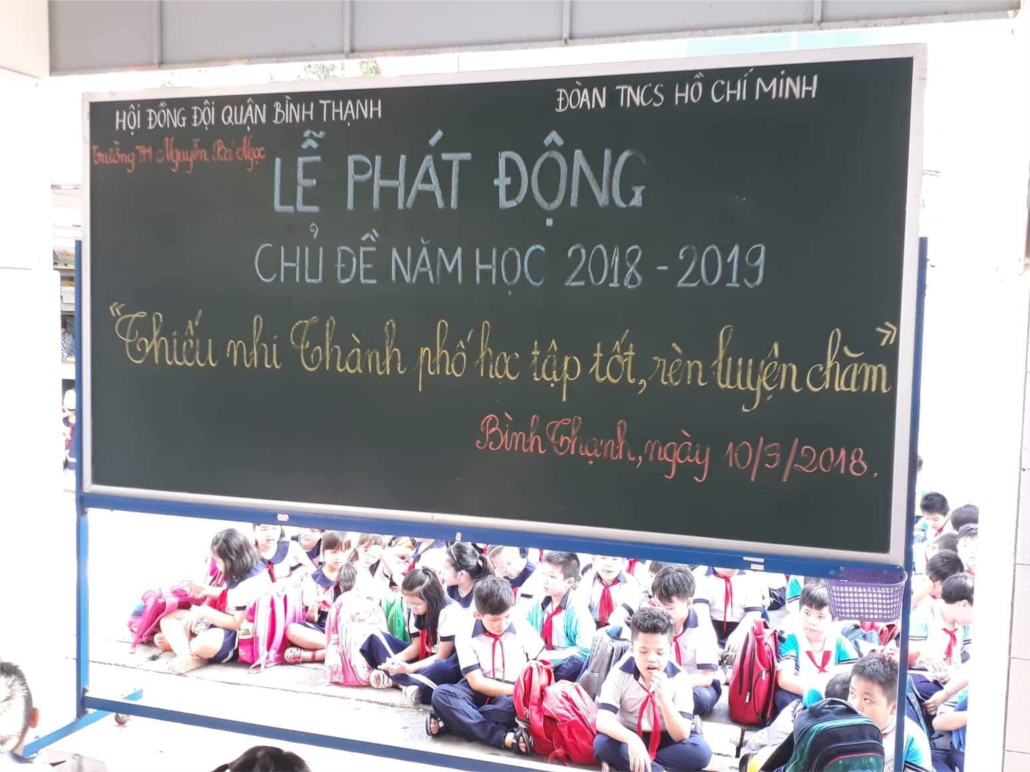 HỘI ĐỒNG ĐỘI QUẬN BÌNH THẠNH
ĐOÀN TNCS HỒ CHÍ MINH
Trường TH Nguyễn Bá Ngọc
LỄ PHÁT ĐỘNG
CHỦ ĐỀ NĂM HỌC 2018 - 2019
"Thiếu nhi Thành phố học tập tốt, rèn luyện chăm"
Bình Thạnh, ngày 10/9/2018.